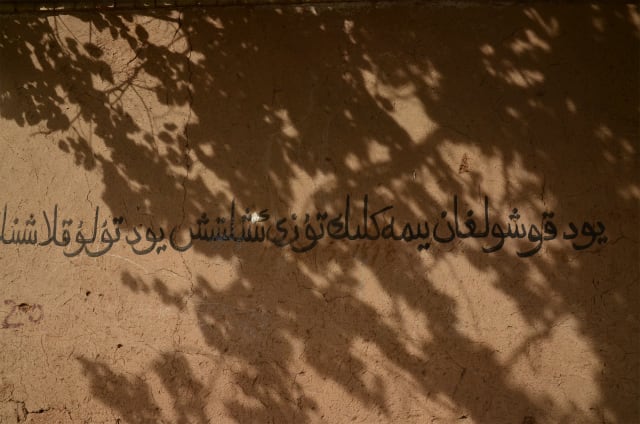 يود قوشولغان يېمەكلىك تۇزى ئىشلىتىش يود تۇلۇقلاشنى